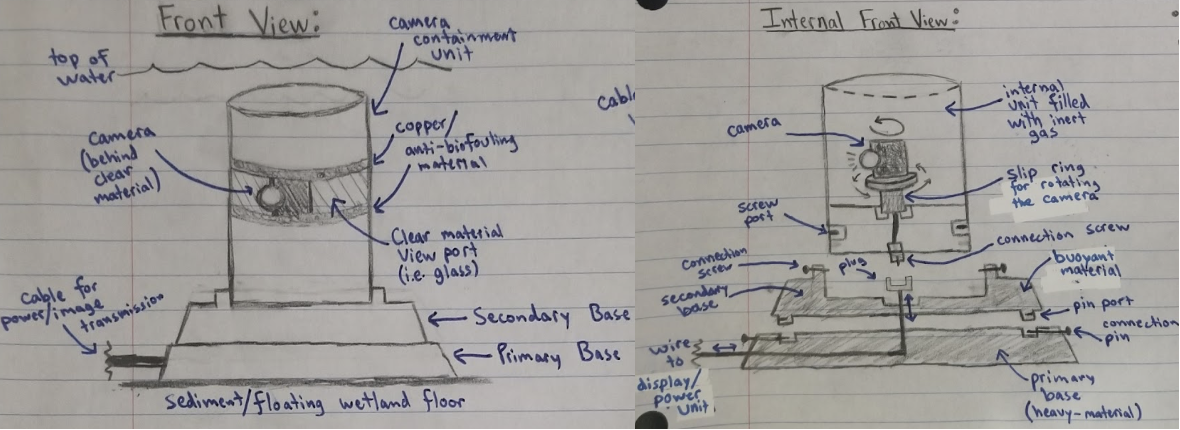 Front View:
camera
containment
unit
top of
water
copper/
anti-biofouling
material
camera
(behind
clear
material)
Clear material
View port
(i.e. glass)
cable for
power/image
transmission
Secondary Base
Primary Base
sediment/floating wetland floor
Internal Front View:
internal
unit filled
with inert
gas
camera
slip ring
for rotating
the camera
screw
port
connection screw
connection
screw
plug
buoyant
material
secondary
base
pin port
connection
pin
wire
to
display/
power
unit
primary
base
(heavy-material)